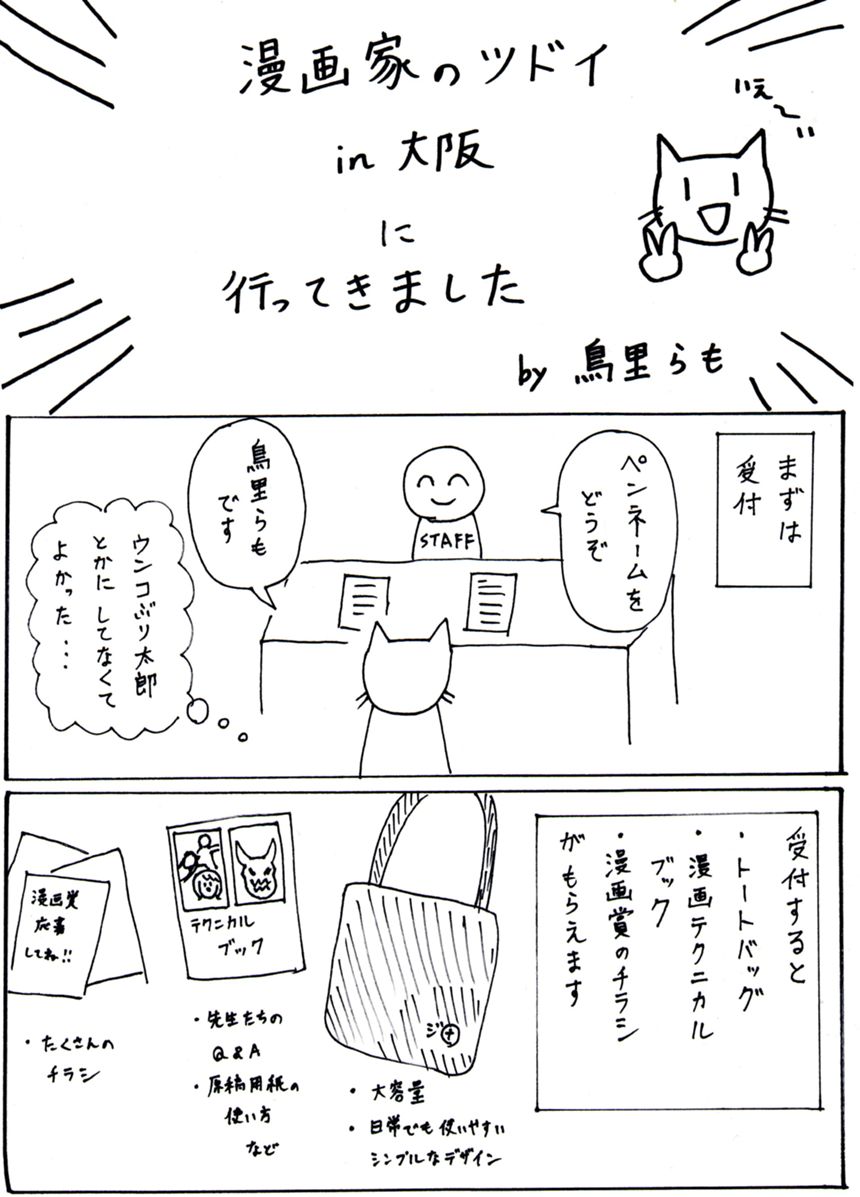 漫画家のツドイ
in 大阪
に
行ってきました
いぇ〜い
by 鳥里らも
まずは
受付
ペンネームを
どうぞ
STAFF
鳥里らも
です
ウンコぶり太郎
とかにしてなくて
よかった・・・
受付すると
・トートバッグ
・漫画テクニカル
ブック
・漫画賞のチラシ
がもらえます
ジ+
・大容量
・日常でも使いやすい
シンプルなデザイン
テクニカル
ブック
・先生たちの
Q&A
・原稿用紙の
使い方
など
漫画賞
応募
してね!!
・たくさんの
チラシ